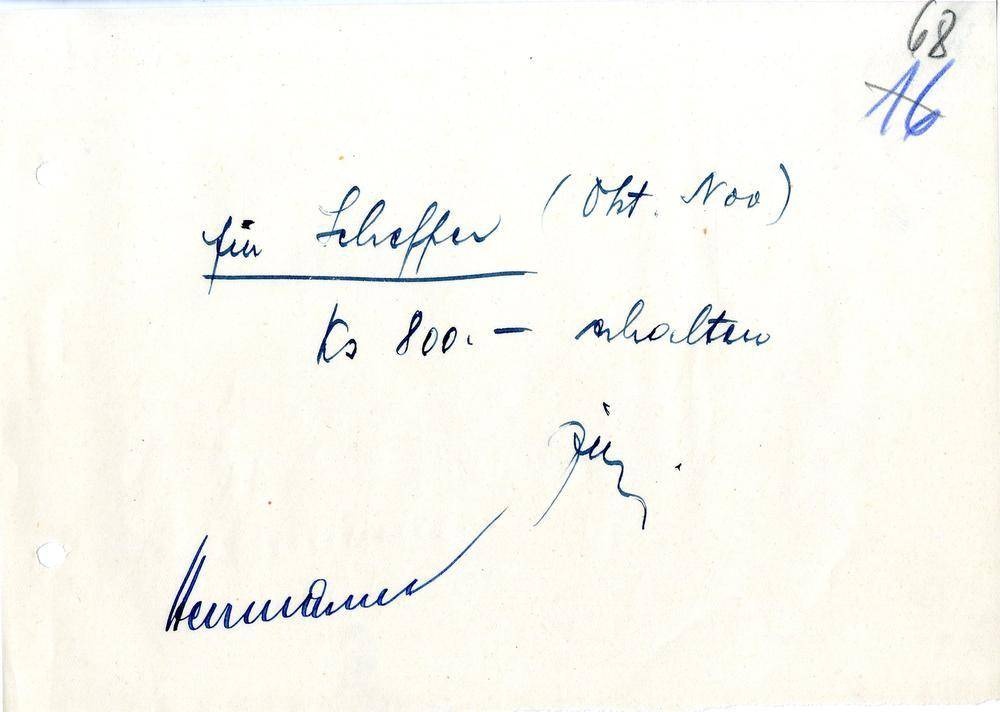 68
16
für Scheffer (Okt. Nov)
Ks 800.— erhalten
Herrmann